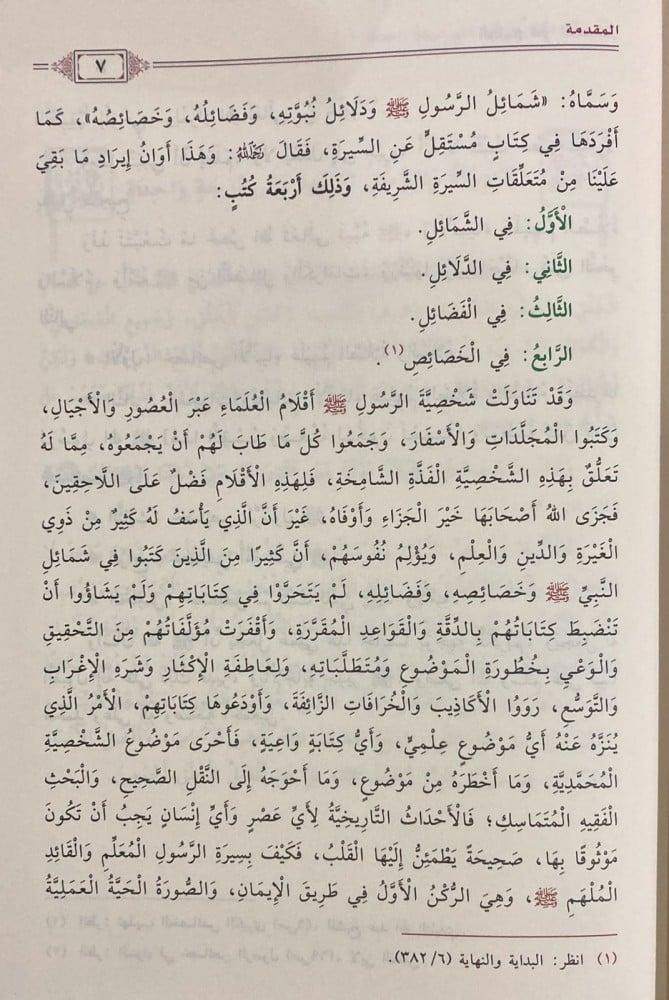 المقدمة
٧
وَسَمَّاهُ: «شَمَائِلُ الرَّسُولِ ﷺ وَدَلَائِلُ نُبُوَّتِهِ، وَفَضَائِلُهُ، وَخَصَائِصُهُ»، كَمَا
أَفْرَدَهَا فِي كِتَابٍ مُسْتَقِلٍّ عَنِ السِّيرَةِ، فَقَالَ رَحِمَهُ اللَّهُ: وَهَذَا أَوَانُ إِيرَادِ مَا بَقِيَ
عَلَيْنَا مِنْ مُتَعَلِّقَاتِ السِّيرَةِ الشَّرِيفَةِ، وَذَلِكَ أَرْبَعَةُ كُتُبٍ:
الْأَوَّلُ: فِي الشَّمَائِلِ.
الثَّانِي: فِي الدَّلَائِلِ.
الثَّالِثُ: فِي الْفَضَائِلِ.
الرَّابِعُ: فِي الْخَصَائِصِ(١).
وَقَدْ تَنَاوَلَتْ شَخْصِيَّةَ الرَّسُولِ ﷺ أَقْلَامُ الْعُلَمَاءِ عَبْرَ الْعُصُورِ وَالْأَجْيَالِ،
وَكَتَبُوا الْمُجَلَّدَاتِ وَالْأَسْفَارَ، وَجَمَعُوا كُلَّ مَا طَابَ لَهُمْ أَنْ يَجْمَعُوهُ، مِمَّا لَهُ
تَعَلُّقٌ بِهَذِهِ الشَّخْصِيَّةِ الْفَذَّةِ الشَّامِخَةِ، فَلِهَذِهِ الْأَقْلَامِ فَضْلٌ عَلَى اللَّاحِقِينَ،
فَجَزَى اللهُ أَصْحَابَهَا خَيْرَ الْجَزَاءِ وَأَوْفَاهُ، غَيْرَ أَنَّ الَّذِي يَأْسَفُ لَهُ كَثِيرٌ مِنْ ذَوِي
الْغَيْرَةِ وَالدِّينِ وَالْعِلْمِ، وَيُؤْلِمُ نُفُوسَهُمْ، أَنَّ كَثِيرًا مِنَ الَّذِينَ كَتَبُوا فِي شَمَائِلِ
النَّبِيِّ ﷺ وَخَصَائِصِهِ، وَفَضَائِلِهِ، لَمْ يَتَحَرَّوْا فِي كِتَابَاتِهِمْ وَلَمْ يَشَاؤُوا أَنْ
تَنْضَبِطَ كِتَابَاتُهُمْ بِالدِّقَّةِ وَالْقَوَاعِدِ الْمُقَرَّرَةِ، وَأَقْفَرَتْ مُؤَلَّفَاتُهُمْ مِنَ التَّحْقِيقِ
وَالْوَعْيِ بِخُطُورَةِ الْمَوْضُوعِ وَمُتَطَلَّبَاتِهِ، وَلِعَاطِفَةِ الْإِكْثَارِ وَشَرَهِ الْإِغْرَابِ
وَالتَّوَسُّعِ، رَوَوُا الْأَكَاذِيبَ وَالْخُرَافَاتِ الزَّائِفَةَ، وَأَوْدَعُوهَا كِتَابَاتِهِمْ، الْأَمْرُ الَّذِي
يُنَزَّهُ عَنْهُ أَيُّ مَوْضُوعٍ عِلْمِيٍّ، وَأَيُّ كِتَابَةٍ وَاعِيَةٍ، فَأَحْرَى مَوْضُوعُ الشَّخْصِيَّةِ
الْمُحَمَّدِيَّةِ، وَمَا أَخْطَرَهُ مِنْ مَوْضُوعٍ، وَمَا أَحْوَجَهُ إِلَى النَّقْلِ الصَّحِيحِ، وَالْبَحْثِ
الْفَقِيهِ الْمُتَمَاسِكِ؛ فَالْأَحْدَاثُ التَّارِيخِيَّةُ لِأَيِّ عَصْرٍ وَأَيِّ إِنْسَانٍ يَجِبُ أَنْ تَكُونَ
مَوْثُوقًا بِهَا، صَحِيحَةً يَطْمَئِنُّ إِلَيْهَا الْقَلْبُ، فَكَيْفَ بِسِيرَةِ الرَّسُولِ الْمُعَلِّمِ وَالْقَائِدِ
الْمُلْهَمِ ﷺ، وَهِيَ الرُّكْنُ الْأَوَّلُ فِي طَرِيقِ الْإِيمَانِ، وَالصُّورَةُ الْحَيَّةُ الْعَمَلِيَّةُ
(١) انظر: البداية والنهاية (٣٨٢/٦).